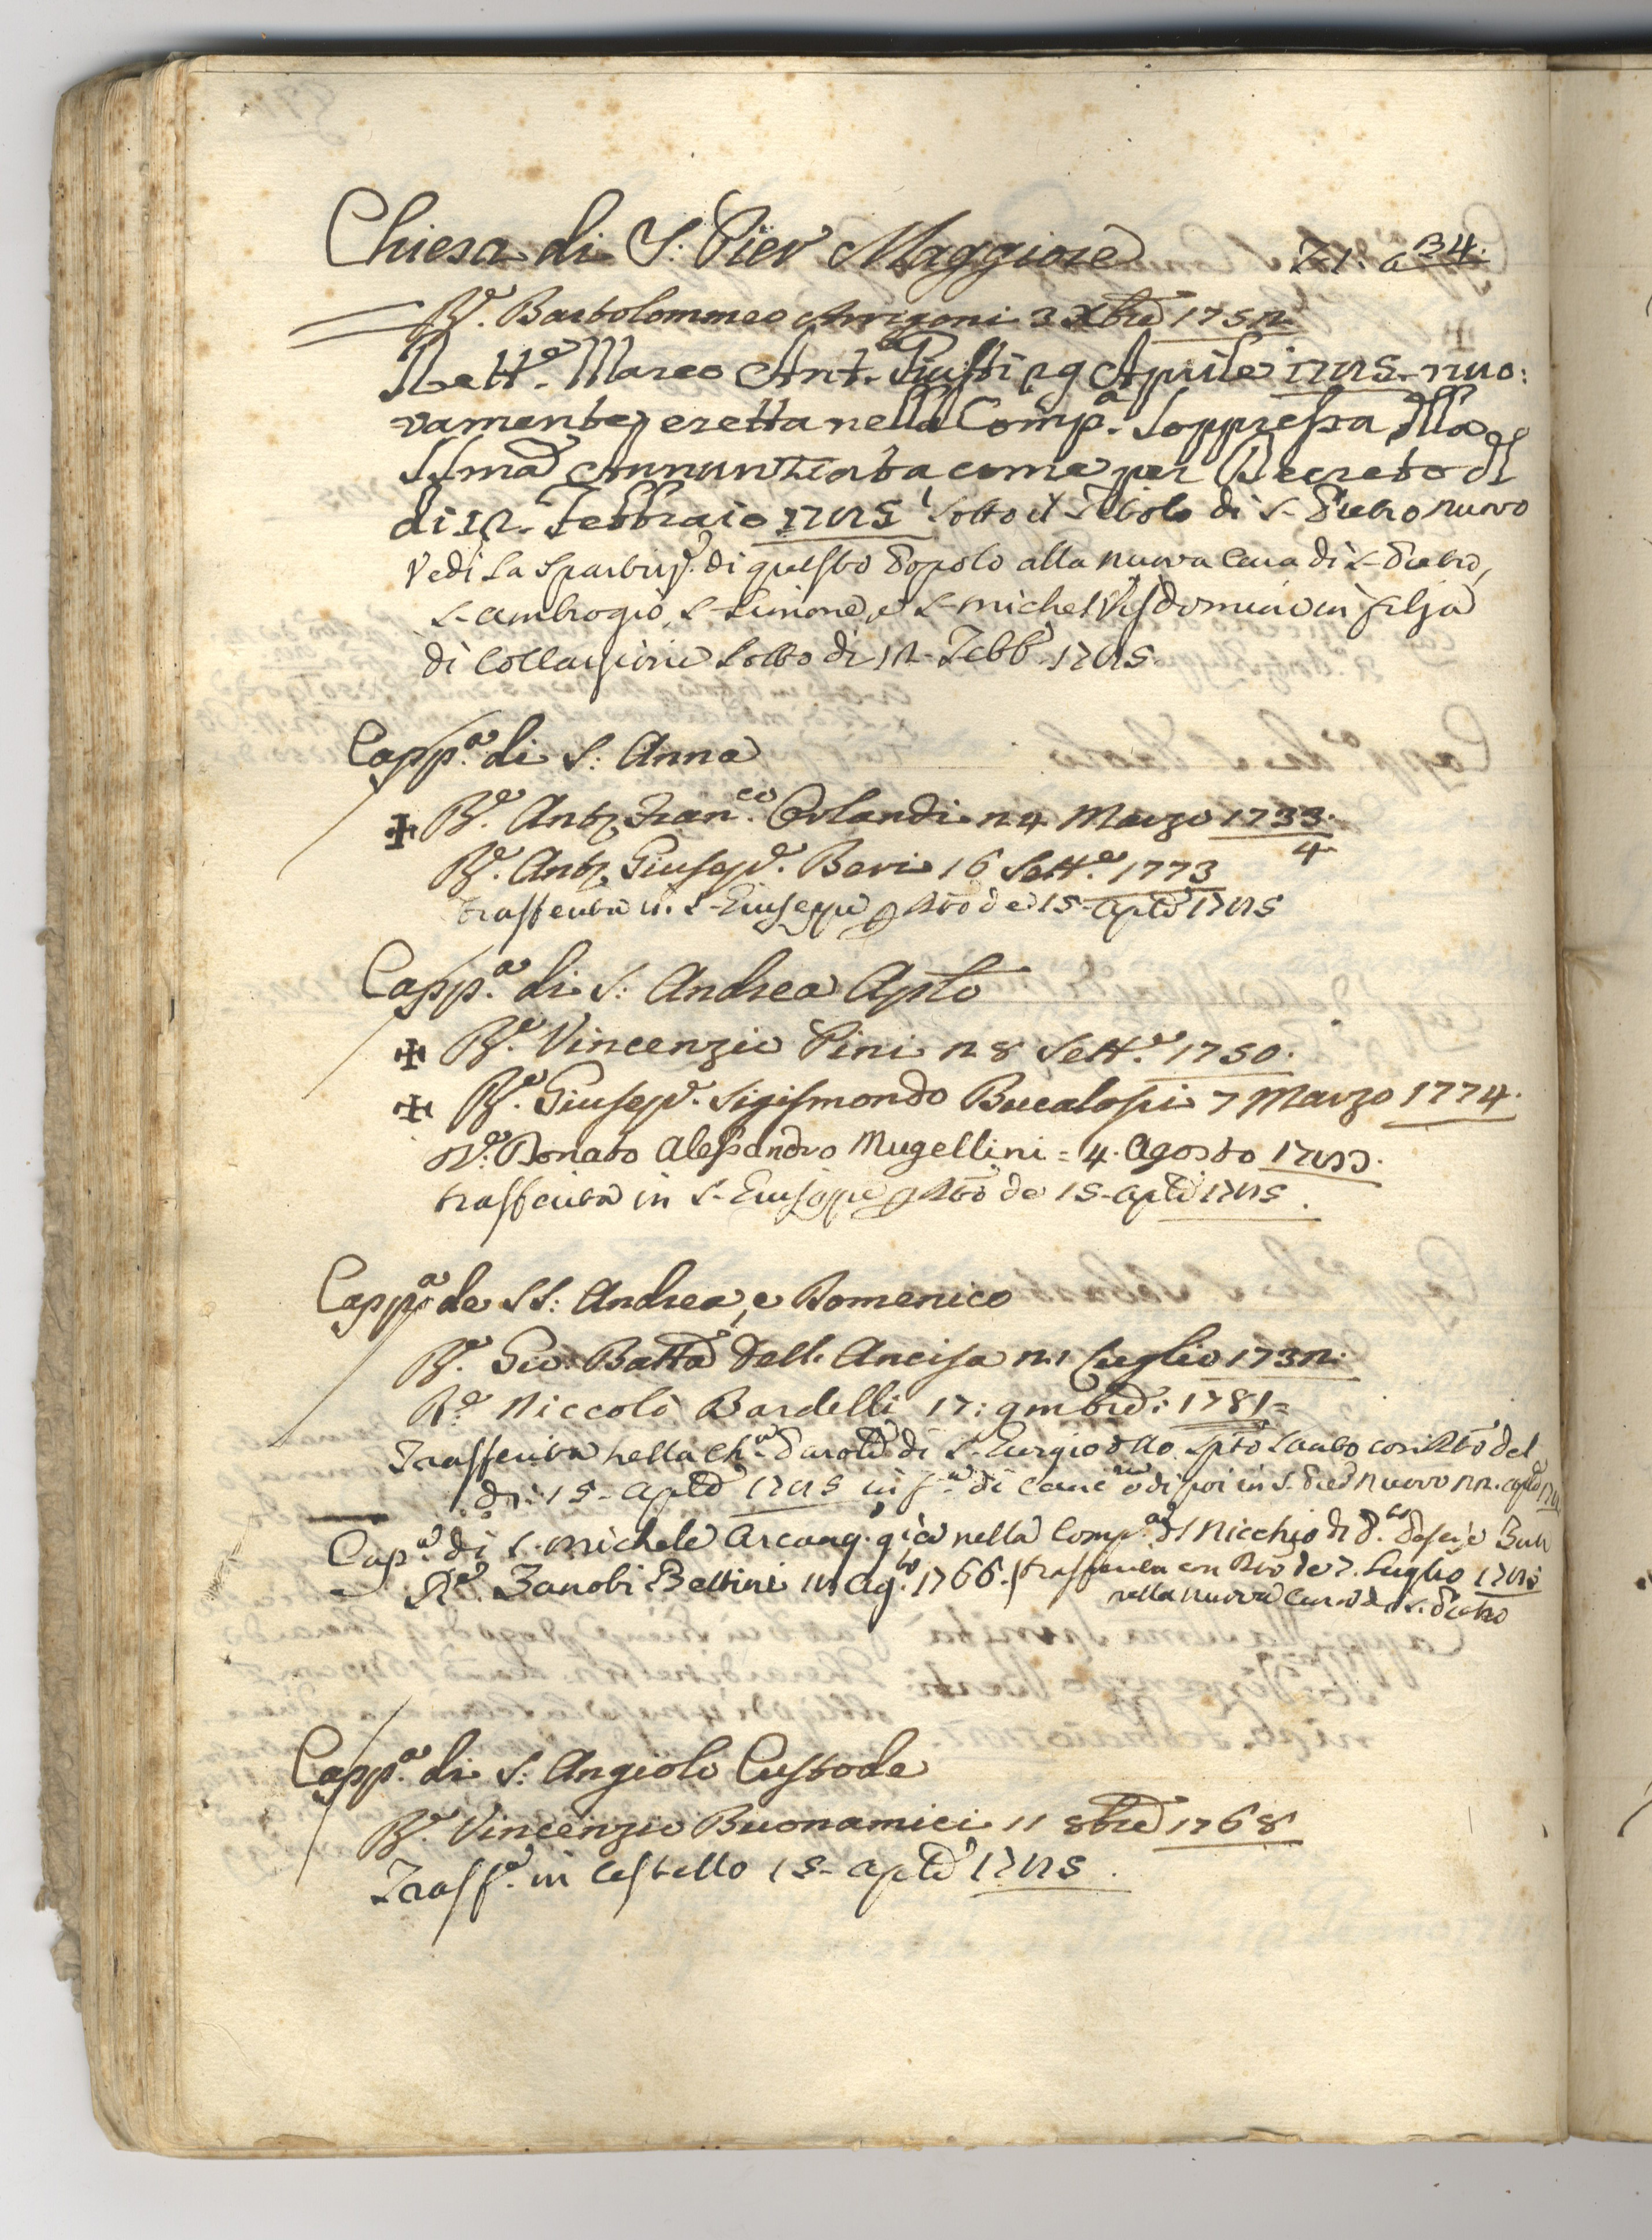 Chiesa di S: Pier Maggiore Z 1. a 34.
Re. Bartolommeo Arrigoni 3 Xbre 1752
Rettre. Marco Ant.o Pristi 29 Aprile 1785. nuo:
vamente eretta nella Comp.a Soppressa della
SSma Annunziata come per Decreto de
di 12. Febbraio 1785 sotto il Titolo di S. Pietro nuovo
Vedi la di questo Popolo alla nuova Cura di S. Pietro,
S. Ambrogio, S. Simone, e S. Michel Visdomini in filza
di Collazioni sotto di 12. Febb. 1785
Capp.a di S: Anna
✠ Re. Anto Franco. Orlandi 24 Marzo 1733.
4
Re. Anto Giusepe. Beni 16 Sette. 1773
trasferita in S. Giuseppe p Rto de 15. Aple 1785
Capp.a di S: Andrea Aplo
✠ Re. Vincenzio Pini 28 Sette. 1750.
✠ Re. Giusepe. Sigismondo Bucalossi 7 Marzo 1774.
Re. Donato Alessandro Mugellini = 4. Agosto 1783.
trasferita in S. Giuseppe p Rto de 15. Aple 1785.
Capp.a de SS: Andrea, e Domenico
Re. Gio: Batta Dell. Ancisa 21 Luglio 1732.
Re. Niccolò Bardelli 17: 9mbre: 1781=
Trasferita nella Cha. Parole di S. Giorgio dllo Spto Santo con Rto del
di: 15. Aple 1785 in di poi in S. Pier Nuovo 22. aple
Capa. di S. Michele Arcang. già nella Compa. dl Nicchio
Re. Zanobi Bettini 18 Agto. 1766. trasferita con Rto de 7. Luglio 1785
nella nuova Cura di S. Pietro
Capp.a di S: Angiolo Custode
Re. Vincenzio Buonamici 11 8bre 1768
Trasfa. in Cestello 15. Aple 1785.